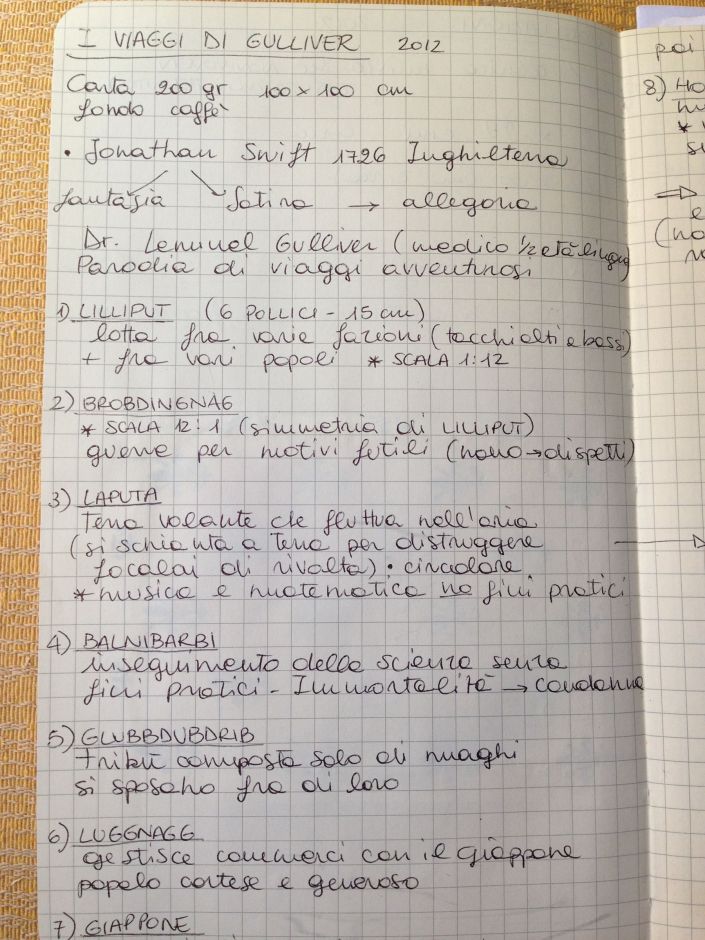 I VIAGGI DI GULLIVER 2012
Carta 200 gr 100 x 100 cm
fondo caffè
• Jonathan Swift 1726 Inghilterra
fantasia satira → allegoria
Dr. Lemuel Gulliver (medico ½ età
Parodia di viaggi avventurosi
1) LILLIPUT (6 POLLICI - 15 cm)
lotta fra varie fazioni (tacchi alti e bassi)
+ fra vari popoli * SCALA 1:12
2) BROBDINGNAG
* SCALA 12:1 (simmetria di LILLIPUT)
guerre per motivi futili (nano → dispetti)
3) LAPUTA
Terra volante che fluttua nell'aria
(si schianta a Terra per distruggere
focolai di rivolta) • circolare
* musica e matematica no fini pratici
4) BALNIBARBI
inseguimento della scienza senza
fini pratici - Immortalità → condanna
5) GLUBBDUBDRIB
tribù composta solo di maghi
si sposano fra di loro
6) LUGGNAGG
gestisce commerci con il giappone
popolo cortese e generoso
7) GIAPPONE
poi
8)